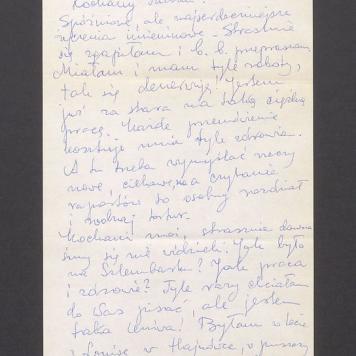 Kochany
Spóźnione, ale najserdeczniejsze
życzenia imieninowe. Strasznie
się zgapiłam i b. b. przepraszam.
Miałam i mam tyle roboty,
tak się denerwuję! Jestem
już za stara na taką ciężką
pracę. Każde przemówienie
kosztuje mnie tyle zdrowia.
A tu trzeba wymyślać rzeczy
nowe, ciekawe, a czytanie
raportów to osobny rozdział
i rodzaj tortur.
Kochani moi, strasznie dawno
śmy się nie widzieli. Jak było
na Szlembarku? Jak praca
i zdrowie? Tyle razy chciałam
do Was pisać, ale jestem
taka leniwa! Byłam w lecie
w Hajnówce, w puszczy